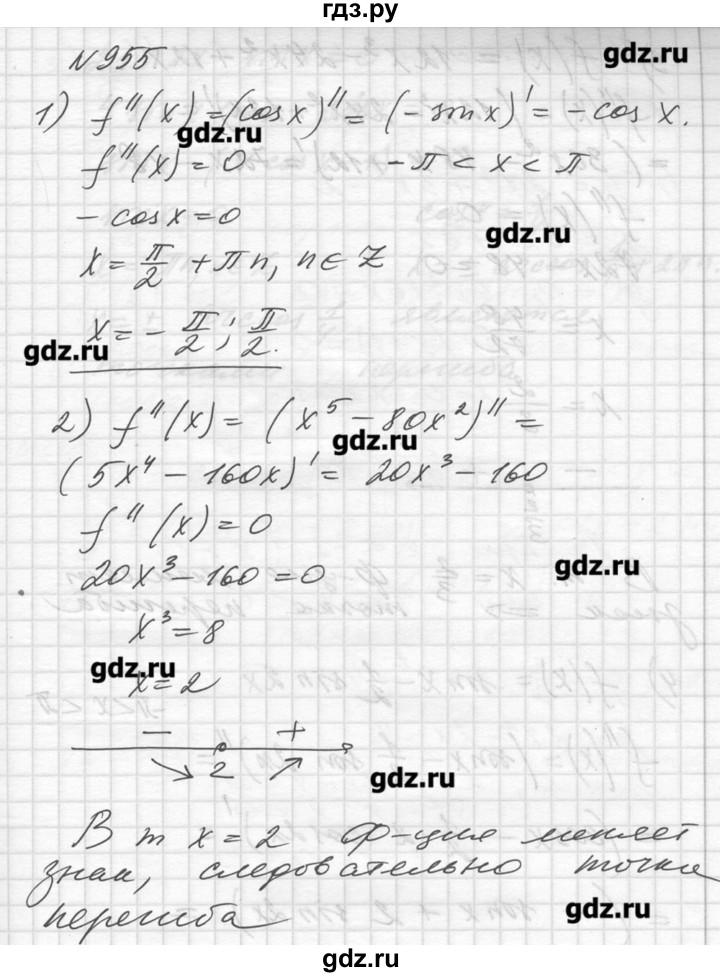 гдз.ру
№955
gdz.ru
1) f''(x) = (cos x)'' = (-sin x)' = -cos x.
gdz.ru
f''(x) = 0 -π < x < π
-cos x = 0
gdz.ru
x = π/2 + πn, n ∈ Z
x = -π/2; π/2.
gdz.ru
2) f''(x) = (x⁵ - 80x²)'' =
gdz.ru
(5x⁴ - 160x)' = 20x³ - 160
f''(x) = 0
20x³ - 160 = 0
gdz.ru
x³ = 8
gdz.ru
x = 2
- +
↘ 2 ↗
gdz.ru
В т x = 2 ф-ция меняет
знак, следовательно точка
перегиба
gdz.ru
gdz.ru